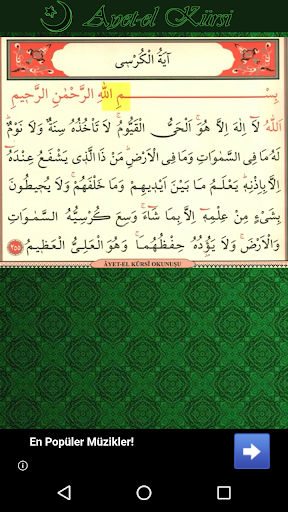 Ayet-el Kürsi
آيَةُ الْكُرْسِى
بِسْـــــــمِ اللّٰهِ الرَّحْمٰنِ الرَّحٖيمِ
اَللّٰهُ لَٓا اِلٰهَ اِلَّا هُوَۚ اَلْحَىُّ الْقَيُّومُۚ لَا تَاْخُذُهُ سِنَةٌ وَلَا نَوْمٌۜ
لَهُ مَا فِى السَّمٰوَاتِ وَمَا فِى الْاَرْضِۜ مَنْ ذَا الَّذٖى يَشْفَعُ عِنْدَهُٓ
اِلَّا بِاِذْنِهٖۜ يَعْلَمُ مَا بَيْنَ اَيْدٖيهِمْ وَمَا خَلْفَهُمْۚ وَلَا يُحٖيطُونَ
بِشَىْءٍ مِنْ عِلْمِهٖٓ اِلَّا بِمَا شَٓاءَۚ وَسِعَ كُرْسِيُّهُ السَّمٰوَاتِ
وَالْاَرْضَۚ وَلَا يَؤُ۫دُهُ حِفْظُهُمَاۚ وَهُوَ الْعَلِىُّ الْعَظٖيمُ ٢٥٥
ÂYET-EL KÜRSÎ OKUNUŞU
En Popüler Müzikler!